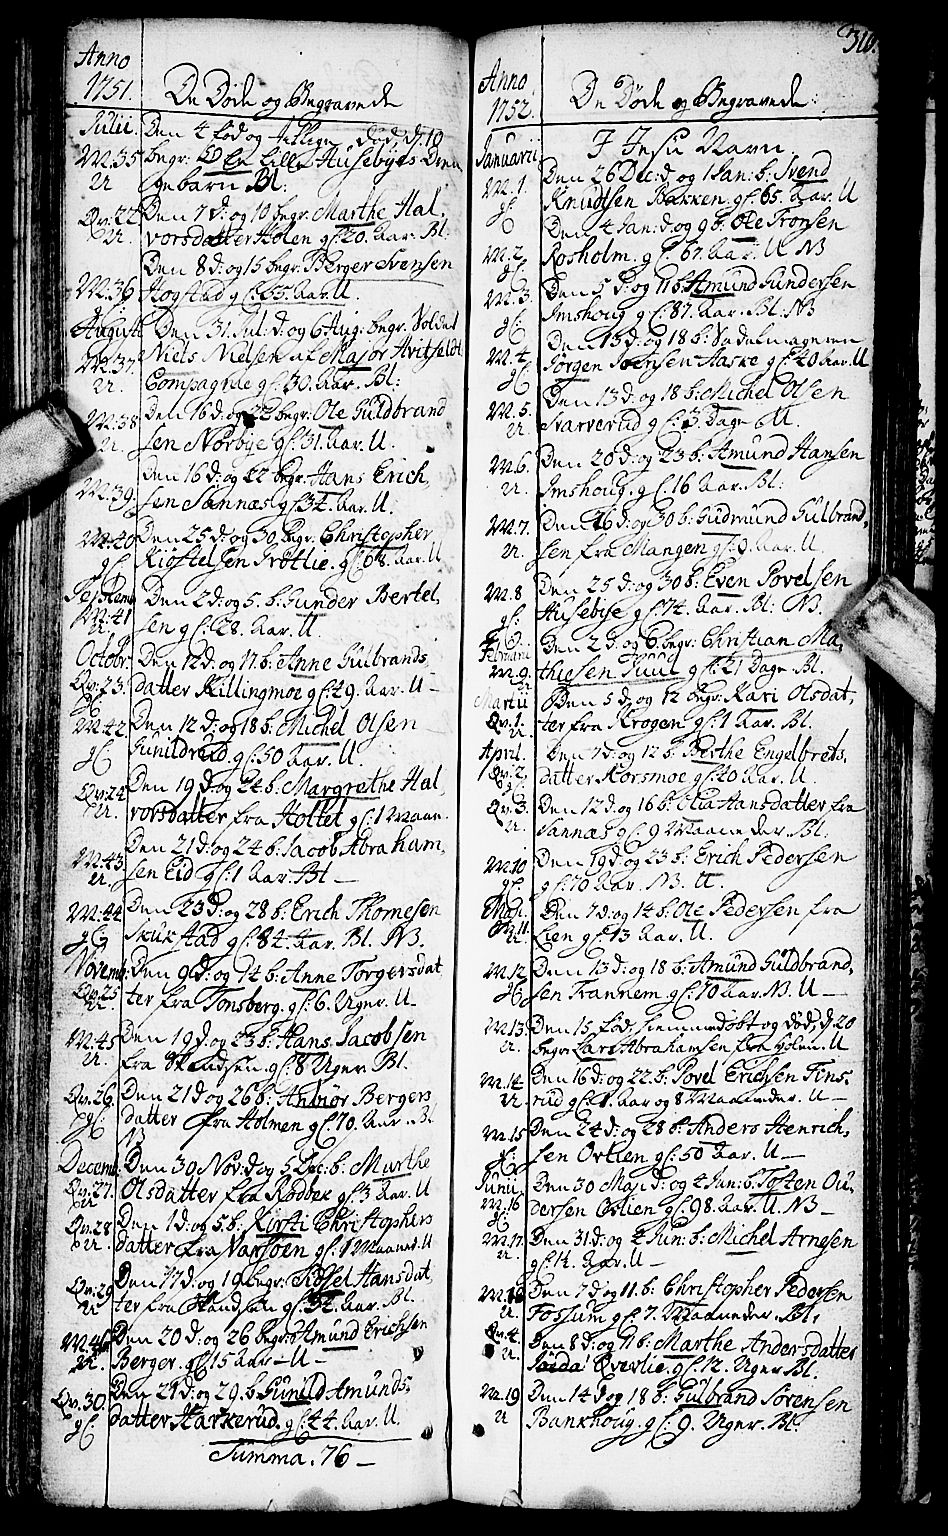 Anno
1751. De Døde og Begravede
Julii. Den 4 fød og død d. 10
M. 35 begr: Lille Husebyes
U barn Bl:
Qv. 22 Den 7 d: og 10 begr. Marthe Hal-
U. vorsdatter Holen gl: 20. Aar. Bl.
Den 8 d: og 15 begr. Berger Svensen
M. 36 Hogstad gl: 65. Aar. U.
Augusti Den 31 Jul: d: og 6 Aug: begr. Soldat
M. 37. Niels Nielsen af Major Hvitfeldt
U. Compagnie gl: 30. Aar. Bl:
M. 38 Den 16 d: og 22 begr: Ole Guldbrand
U sen Norbye gl: 31. Aar. U.
Den 16 d: og 22 begr: Hans Erich,
M. 39. sen Sannæs gl: 34. Aar. U.
M. 40 Den 25 d: og 30 begr. Christopher
gC Kiøstelsen Grøtlie. gl: 68. Aar. U
Septemb Den 2 d: og 5. b: Gunder Bertel,
M. 41 sen gl: 28. Aar. U
Octobr. Den 12 d: og 17 b: Anne Gulbrands,
Qv. 23. datter Killingmoe gl: 49. Aar. U –
M. 42 Den 12 d: og 18 b: Michel Olsen –
gC Gunildrud. gl: 50 Aar. U.
Qv. 24 Den 19 d: og 24 b: Margrethe Hal,
U. vorsdatter fra Holtet gl: 1 Maan.
Den 21 d: og 24 b: Jacob Abraham,
M. 43. sen Eid gl: 1 Aar. Bl –
M. 44 Den 23 d: og 28 b: Erich Thomesen
gC Skukstad gl: 84. Aar. Bl. NB.
Novemb: Den 9 d: og 14 b: Anne Torgersdat
Qv. 25 ter fra Tonsberg. gl: 6. Uger. U
M. 45 Den 19 d: og 23 b: Hans Jacobsen
U. fra Skandsen. gl: 8 Uger Bl.
Qv. 26 Den 21 d og 26 b: Anbior Bergers
gC datter fra Holmen gl: 70. Aar. Bl
NB
Decemb: Den 30 Nov: d og 5 Dec: b: Marthe
Qv. 27. Olsdatter fra Rødbek gl: 3 Aar. U
Qv. 28 Den 1 d: og 5 b: Kirsti Christophers
U. datter fra gl: 1 Maaned. U
Qv. 29 Den 17 d: og 19 begr: Sidsel Hansdat
U ter fra Skandsen gl: 34. Aar. Bl.
M. 46 Den 20 d: og 26 begr: Amund Erichsen
U. Berger. gl: 15 Aar – U –
Qv. 30. Den 21 d: og 29. b: Gunild Amunds,
gC. datter Harkerud. gl: 44. Aar. U.
Summa. 76 –
310.
Anno
1752. De Døde og Begravede:
Januarii I Jesu Navn.
M. 1. Den 26 Dec: d og 1 Jan: b: Svend
gC Knudsen Bakken. gl: 65. Aar. U
Den 4 Jan: d: og 9 b: Ole Tronsen
M. 2 Rosholm. gl: 67. Aar. U NB
M. 3. Den 5 d: og 11 b: Amund Gundersen
gC Imshoug gl: 87. Aar. Bl. NB
M. 4. Den 13 d: og 18 b: Sadelmager
gC Jørgen Aaske gl: 40 Aar. U
M. 5. Den 13 d: og 18 b: Michel Olsen
U. Svarverud gl: 3 Dage U.
M. 6. Den 20 d: og 23 b: Amund Hansen
U. Imshoug. gl 16 Aar. Bl:
M. 7 Den 26 d: og 30 b: Gudmund Gulbrand,
U. sen fra Mangen gl: 9. Aar. U
M. 8 Den 25 d: og 30 b: Even Povelsen
gC. Husebye gl: 74. Aar. Bl: NB.
Februarii Den 2 d: og 6 begr: Christian Ma
M. 9. thiesen Juul gl: 21 Dage Bl.
Martii Den 5 d: og 12 begr. Kari Olsdat,
Qv. 1. ter fra Krogen gl: 1 Aar. Bl.
April. Den 7 d: og 12 b: Berthe Engelbrets,
Qv. 2. datter Korsmoe gl: 40 Aar. U.
Qv. 3. Den 12 d: og 16 b: Olia Hansdatter fra
U. Sannæs gl: 9 Maaneder. Bl.
M. 10 Den 19 d: og 23 b: Erich Pedersen
gC gl: 70 Aar. NB. U.
Maji. Den 7 d: og 14 b: Ole Pedersen fra
M. 11. Lien gl: 13 Aar. U.
M. 12 Den 13 d: og 18 b: Amund Guldbrand,
gC. sen Trannem. gl: 70 Aar. NB. U –
M. 13. Den 15 fød, hiemmedøbt og død, d 20
U. begr: Lars Abrahamsen fra Holen. U
M. 14 Den 16 d: og 22 b: Povel Erichsen Fins,
U. rud gl: 1. Aar og 8 Maaneder. U –
M. 15 Den 24 d: og 28 b: Anders Henrich,
gC. sen Ovlien gl: 50 Aar. U –
Junii Den 30 Maj: d: og 4 Jun: b: Tosten Gu,
M. 16 dersen Oslien gl: 98. Aar. U. NB –
M. 17. Den 31 d: og 4 Jun: b: Michel Arnesen
U. gl: 14. Aar. U –
M. 18 Den 7 d: og 11. b: Christopher Pedersen
U. Fossum gl: 7. Maaneder. Bl,
Qv. 4. Den 8 d: og 11 b: Marthe Andersdatter
U. Overlie. gl: 12. Uger. Bl.
M. 19 Den 14 d: og 18 b: Gulbrand Sorensen
U Bankhoug. gl: 9. Uger. Bl.